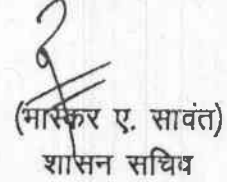 (भास्कर ए. सावंत)
शासन सचिव